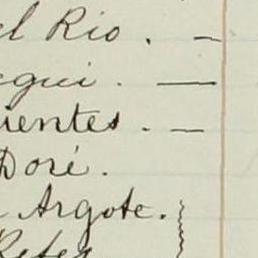 el Rio. —
egui. —
uentes. —
Doré.
Argote.
Retes